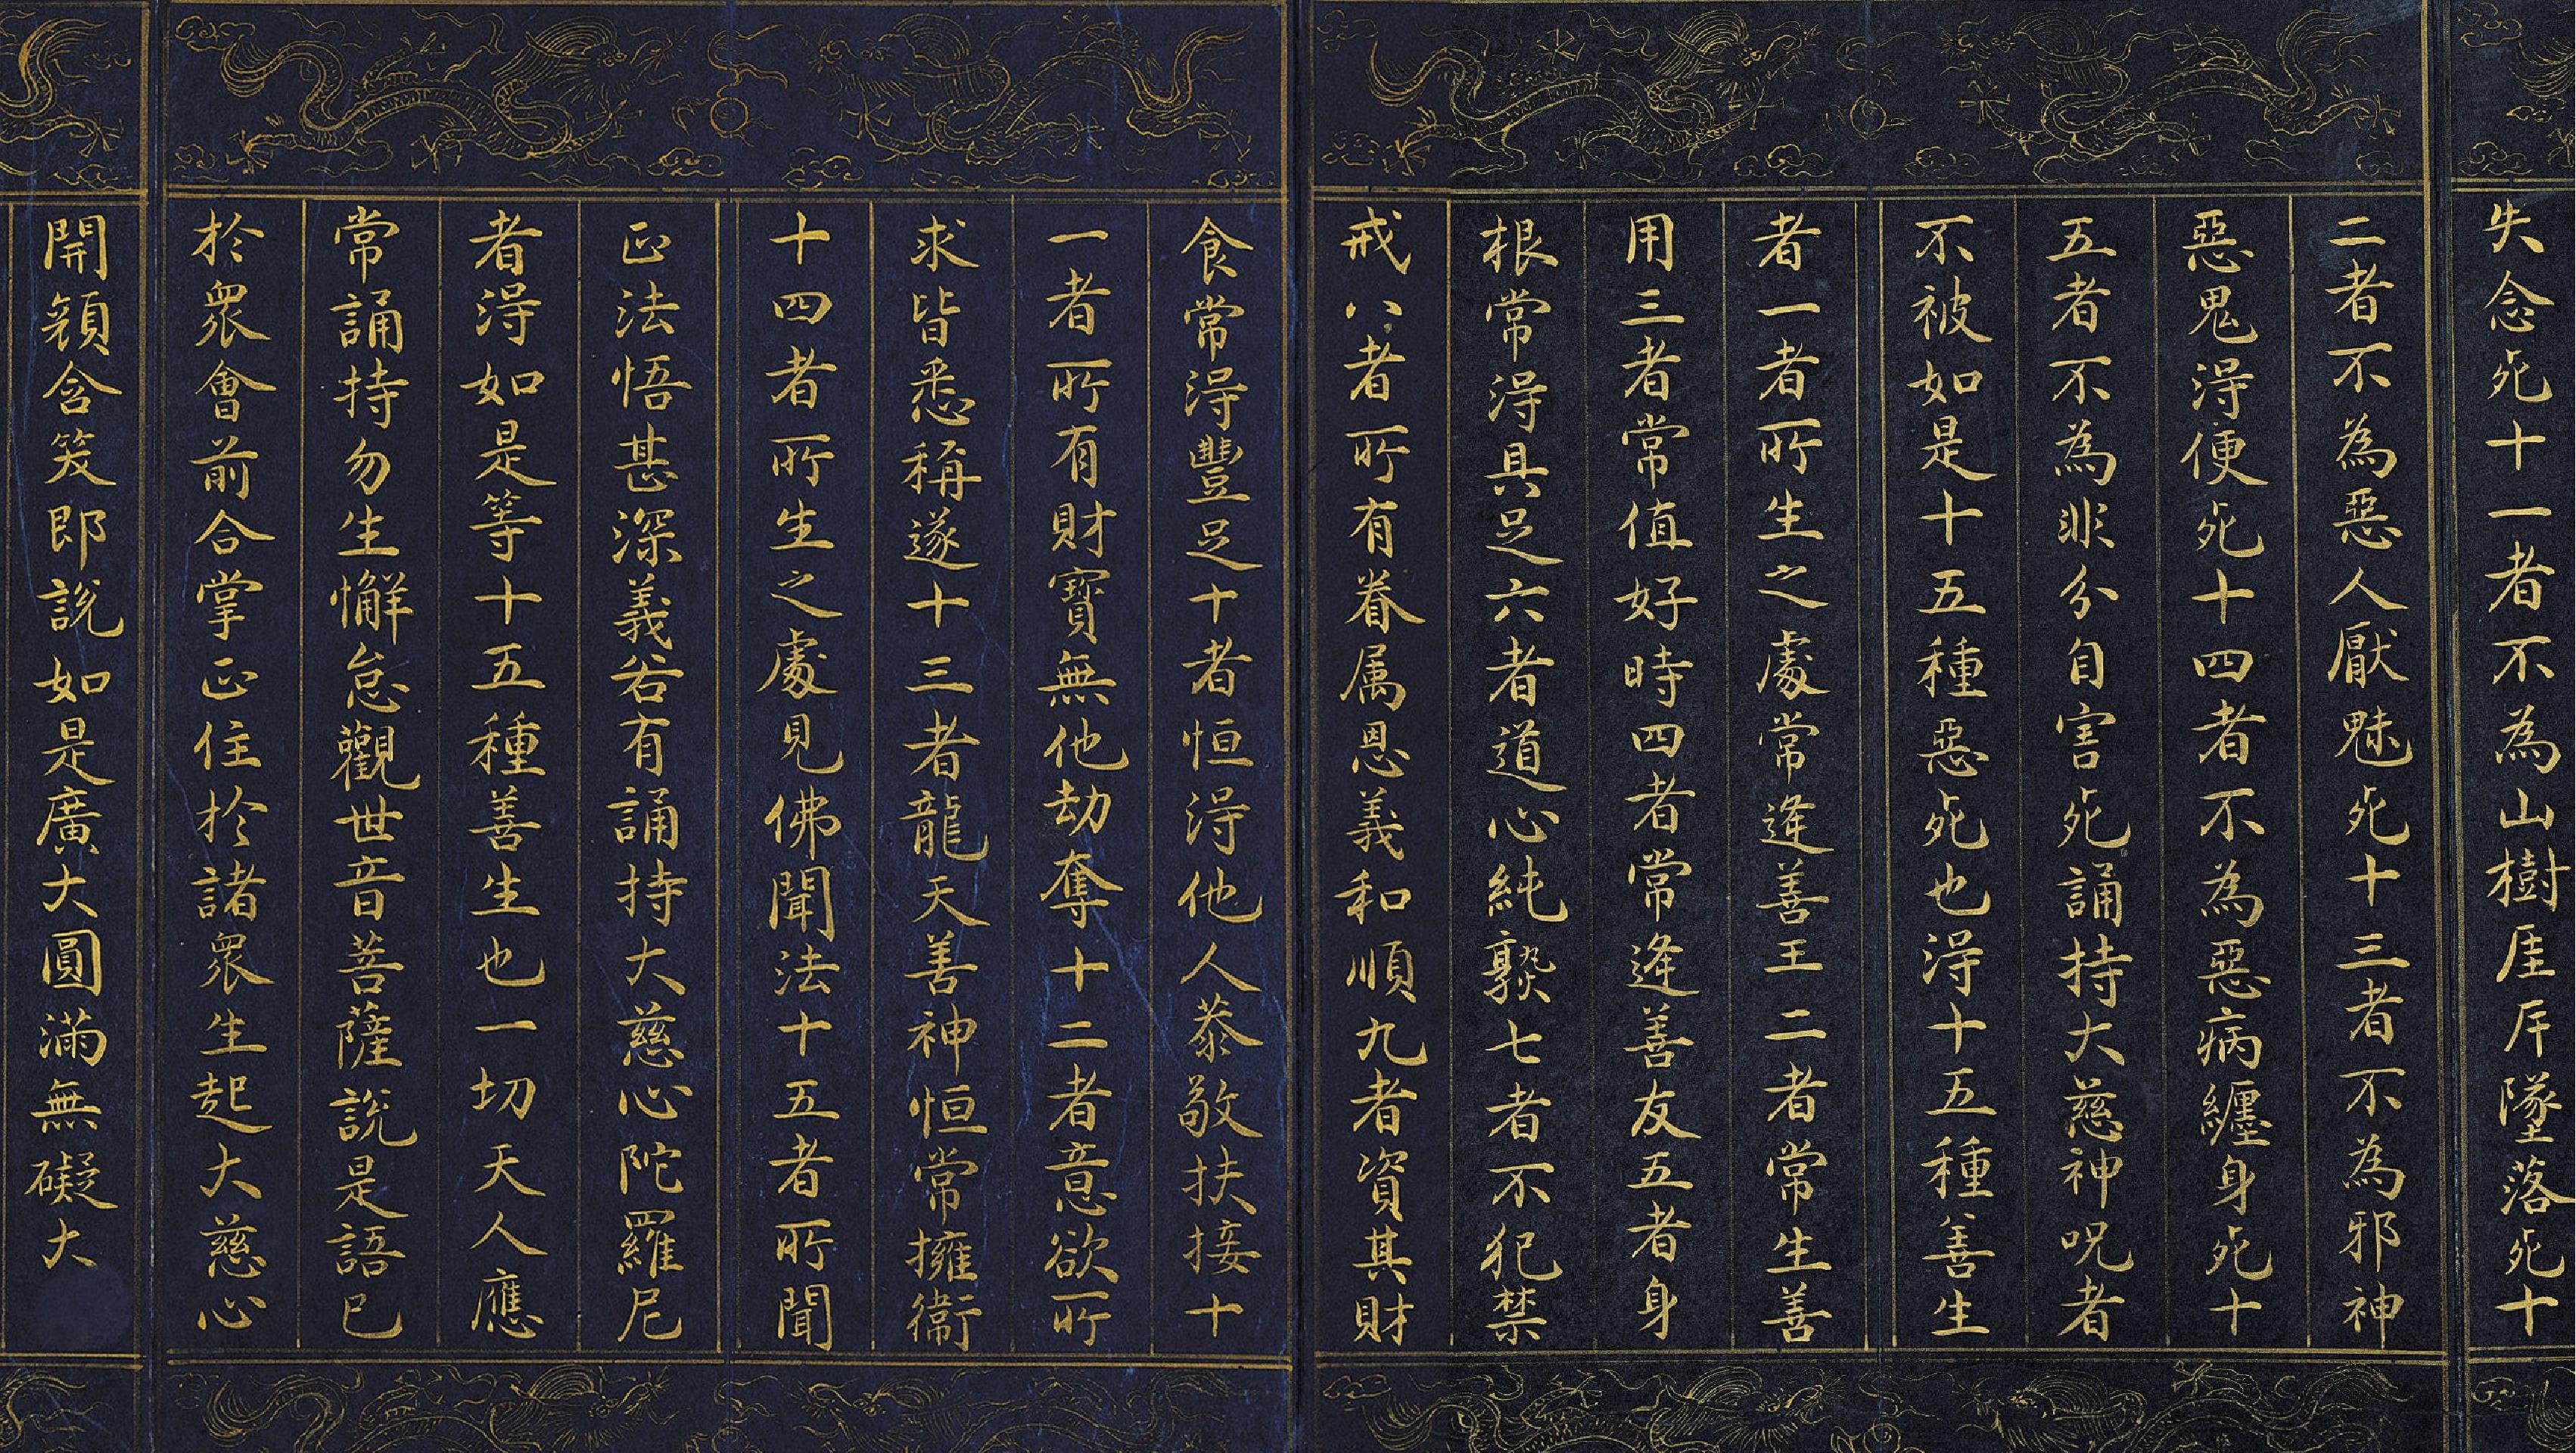 失念死十一者不為山樹厓岸墜落死十
二者不為惡人厭魅死十三者不為邪神
惡鬼得便死十四者不為惡病纏身死十
五者不為非分自害死誦持大慈神呪者
不被如是十五種惡死也得十五種善生
者一者所生之處常逢善王二者常生善
用三者常值好時四者常逢善友五者身
根常得具足六者道心純熟七者不犯禁
戒八者所有眷属恩義和順九者資其財
食常得豐足十者恒得他人恭敬扶接十
一者所有財寶無他劫奪十二者意欲所
求皆悉稱遂十三者龍天善神恒常擁衞
十四者所生之處見佛聞法十五者所聞
正法悟甚深義若有誦持大慈心陀羅尼
者得如是等十五種善生也一切天人應
常誦持勿生懈怠觀世音菩薩說是語已
於眾會前合掌正住於諸眾生起大慈心
開顏含笑即說如是廣大圓滿無礙大